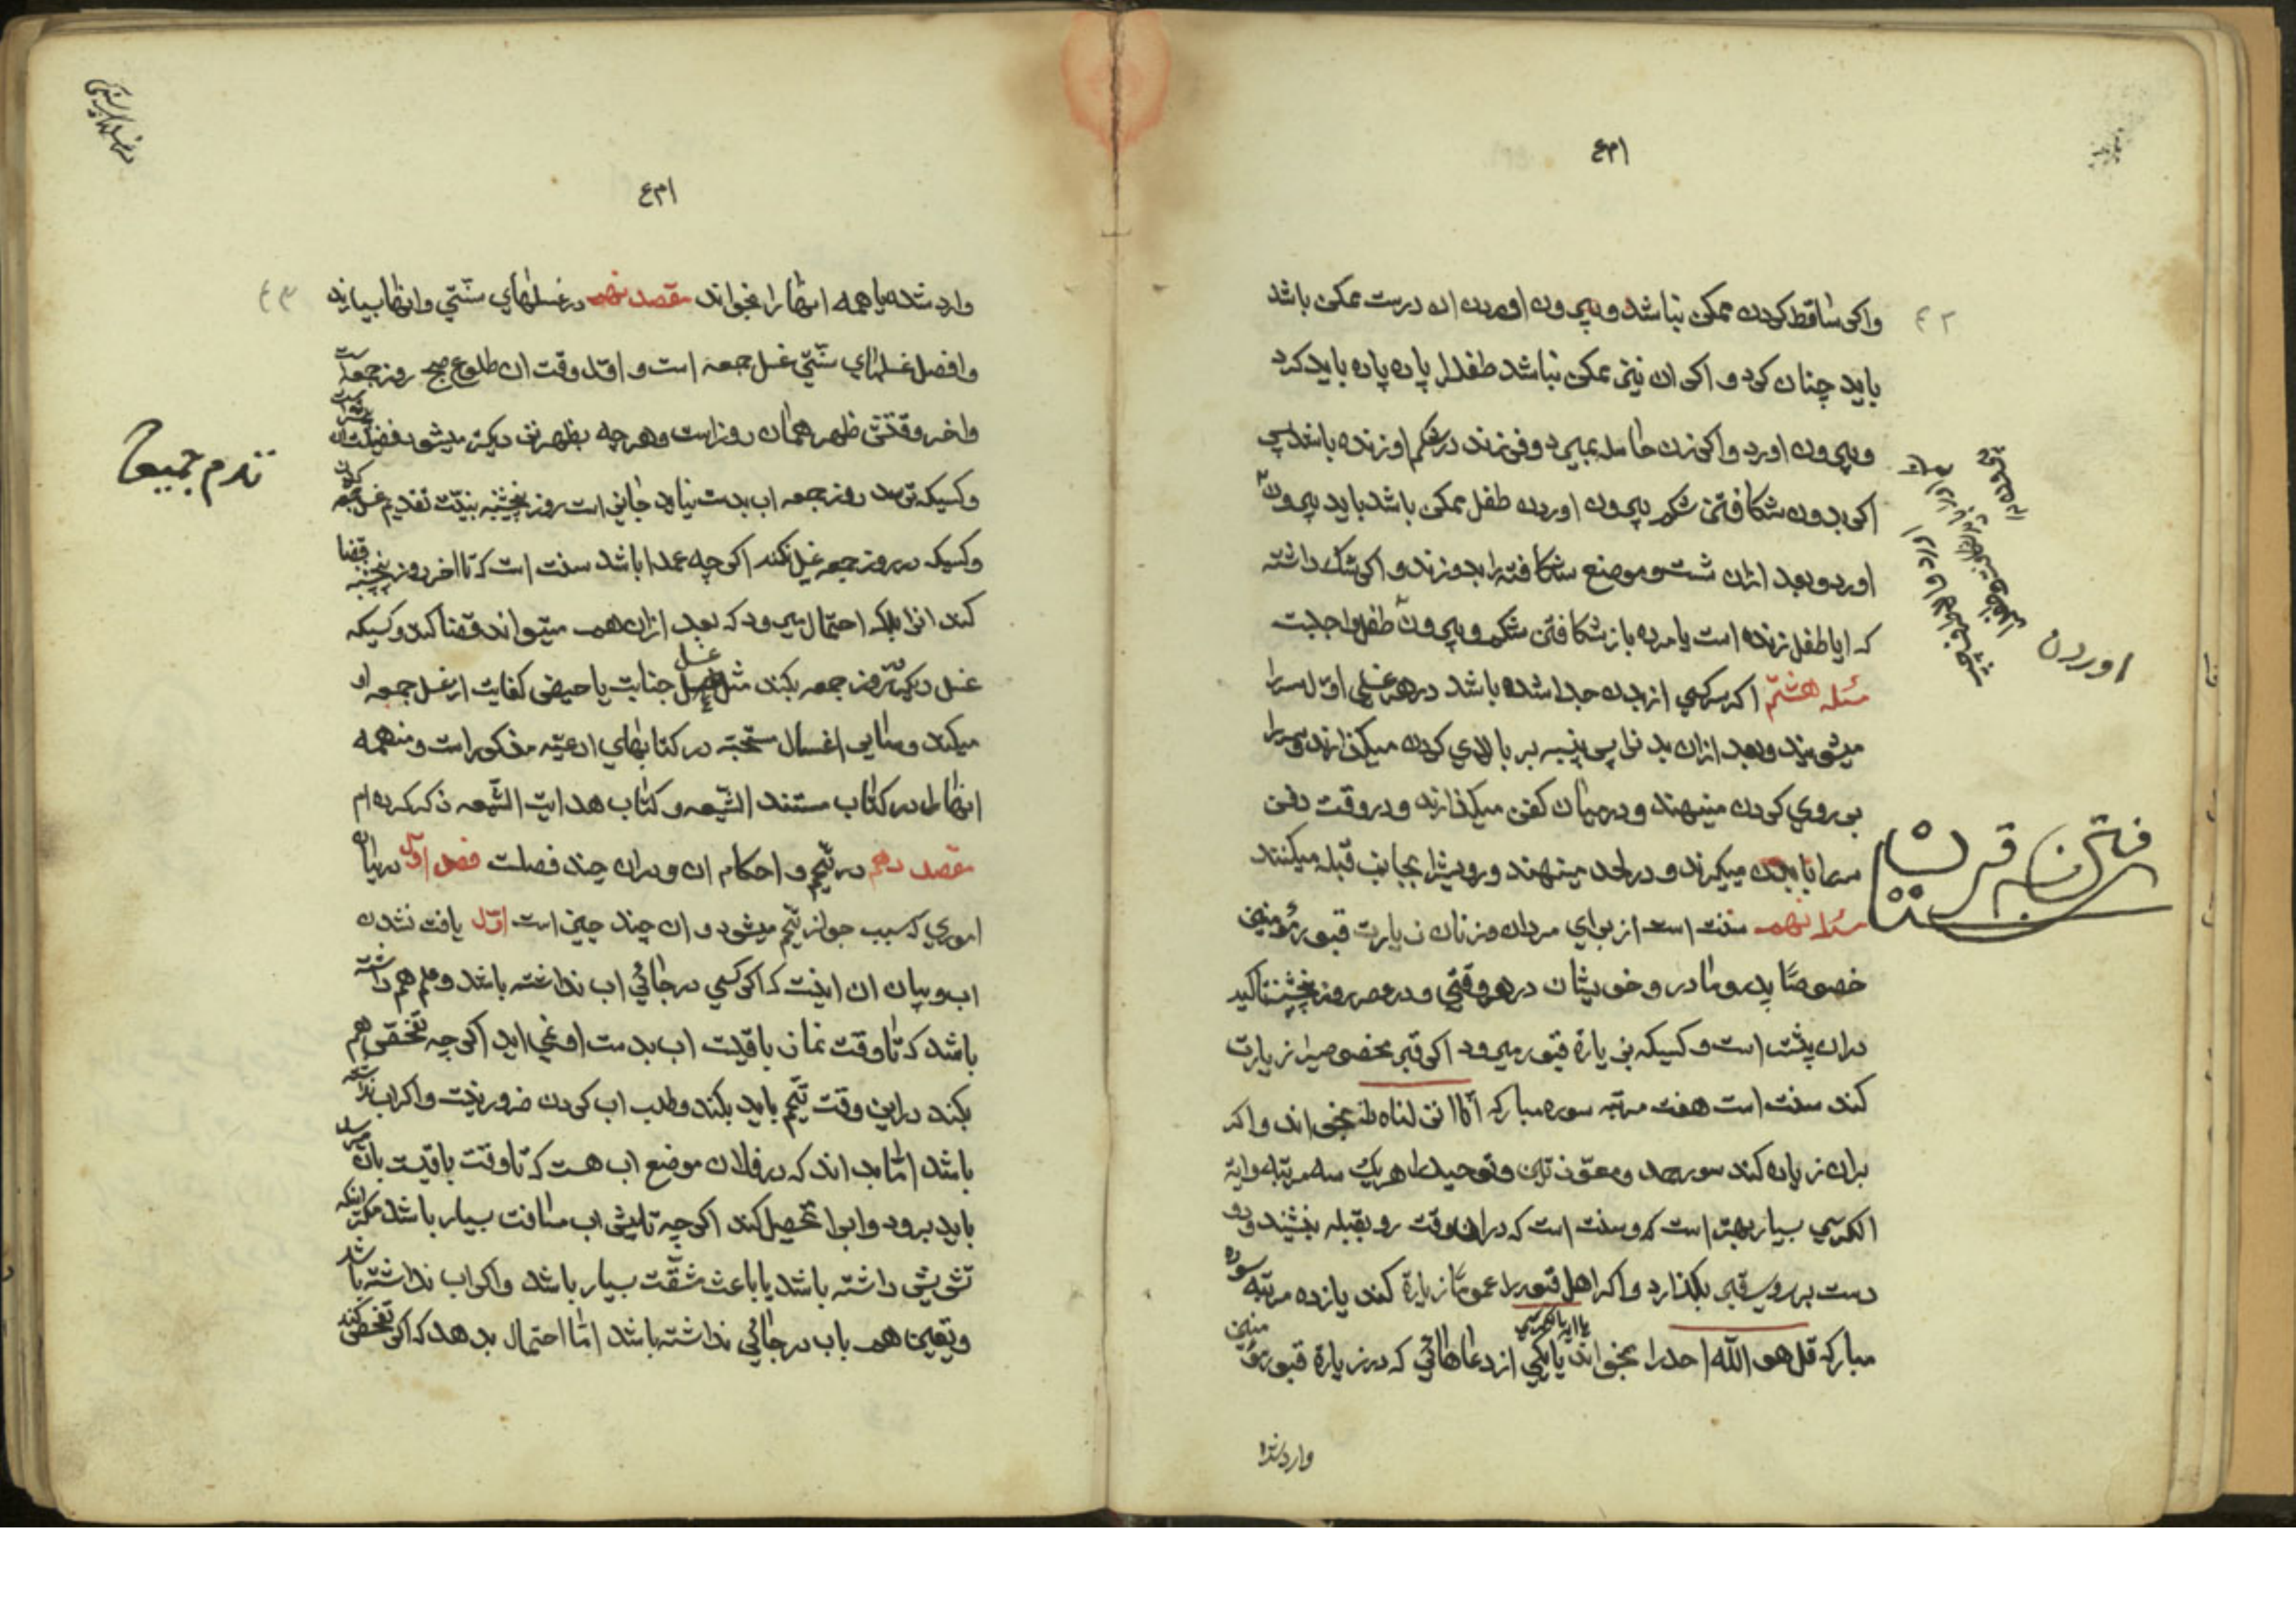 ۴۲
واکر ساقط کردن ممکن نباشد و بیرون اوردن ان درست ممکن باشد
باید چنان کرد و اکر ان نیز ممکن نباشد طفلرا پاره پاره باید کرد
و بیرون اورد و اکر زن حامله بمیرد و فرزند در شکم او زنده باشد پس
اکر بدون شکافتن شکم بیرون اوردن طفل ممکن باشد باید بیرون
اورد و بعد ازان شست و موضع شکافته را بدوزند و اکر شک داشته
که ایا طفل زنده است یا مرده باز شکافتن شکم و بیرون طفل واجبست
اوردن
مسئله هشتم اکر سر کسی از بدن جدا شده باشد در هر غسلی اول سر را
میشویند و بعد ازان بدنرا پس پنبه بر بالای کردن میکذارند و سر را
بر روی کردن مینهند و در میان کفن میکذارند و در وقت دفن
سر را با بدن میکیرند و در لحد مینهند و رویش را بجانب قبله میکنند
مسئله نهم سنت است از برای مردان و زنان زیارت قبور مؤمنین
خصوصًا پدر و مادر و خویشان در هر وقتی و در عصر روز پنجشنبه تاکید
دران بیشتر است و کسیکه بزیارة قبور میرود اکر قبر مخصوصیرا زیارت
کند سنت است هفت مرتبه سوره مبارکه انا انزلناه بخواند و اکر
بران زیاده کند سوره حمد و معوذتین و توحید را هر یک سه مرتبه و ایة
الکرسی بسیار بهتر است و سنت است که دران وقت رو بقبله بنشیند و رو
دست بر روی قبر بکذارد و اکر اهل قبور را عمومًا زیارة کند یازده مرتبه سوره
مبارکه قل هو الله احد را بخواند یا ایة الکرسی یا یکی از دعاهائی که در زیارة قبور مؤمنین
وارد شده
۴۳
وارد شده یا همه انها را بخواند مقصد نهم در غسلهای سنتی و انها بسیارند
و افضل غسلهای سنتی غسل جمعه است و اول وقت ان طلوع صبح روز جمعه است
و اخر وقتش ظهر همان روز است و هر چه بظهر نزدیکتر میشود فضیلت ان
و کسیکه ترسد روز جمعه اب بدست نیاید جایز است روز پنجشنبه بنیت تقدیم غسل جمعه کردن
و کسیکه در روز جمعه غسل نکند اکر چه عمدا باشد سنت است که تا اخر روز شنبه قضا
کند انرا بلکه احتمال میرود که بعد ازان هم میتواند قضا کند و کسیکه
غسل دیکر در روز جمعه بکند مثل غسل جنابت یا حیض کفایت از غسل جمعه او
میکند و سایر اغسال مستحبه در کتابهای ادعیه مذکور است و من همه
انها را در کتاب مستند الشیعه و کتاب هدایت الشیعه ذکر کرده ام
مقصد دهم در تیمم و احکام ان و دران چند فصلست فصل اول در بیان
اموری که سبب جواز تیمم میشود و ان چند چیز است اول یافت نشدن
اب و بیان ان اینست که اکر کسی در جائی اب نداشته باشد و علم هم داشته
باشد که تا وقت نماز باقیست اب بدست او نمی اید اکر چه تفحص هم
بکند دراین وقت تیمم باید بکند و طلب اب کردن ضرور نیست و اکر اب نداشته
باشد اما بداند که در فلان موضع اب هست که تا وقت باقیست بان میرسد
باید برود و ابرا تحصیل کند اکر چه تا پیش اب مسافت بسیار باشد مکر اینکه
تشویش داشته باشد یا باعث مشقت بسیار باشد و اکر اب نداشته باشد
و یقین هم باب در جائی نداشته باشد اما احتمال بدهد که اکر تفحص کند